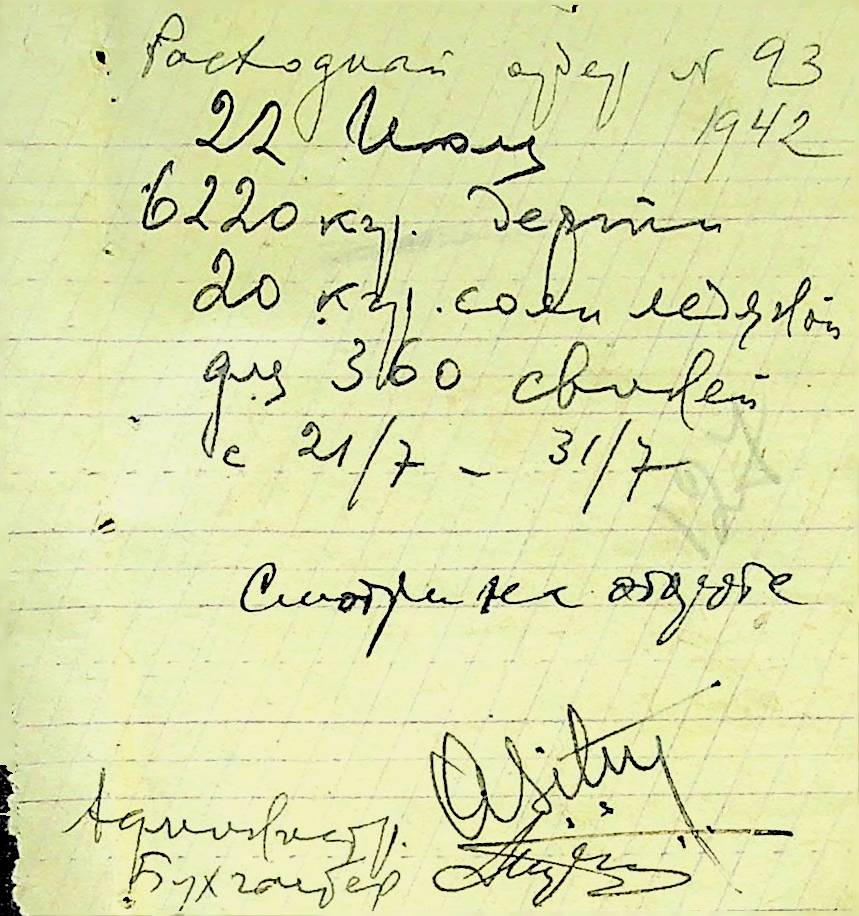 Расходный ордер № 93
22 Июля 1942
6220 кгр. дерти
20 кгр. соли ледяной
для 360 свиней
с 21/7 - 31/7
127
Смотри на обороте
Администр.
Бухгалтер